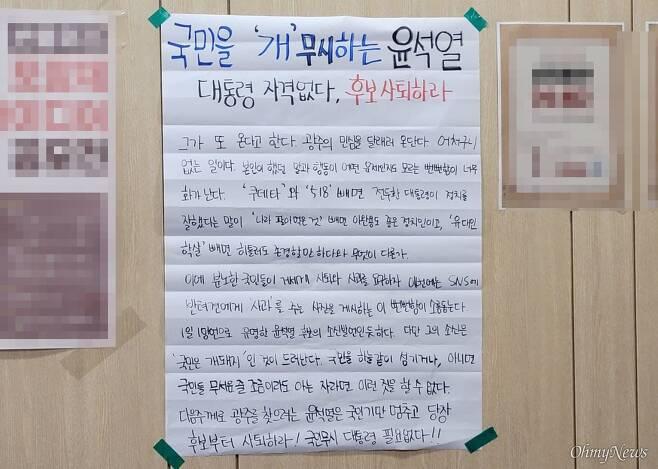 국민을 '개' 무시하는 윤석열
대통령 자격없다, 후보사퇴하라
그가 또 온다고 한다. 광주의 민심을 달래러 온단다. 어처구니
없는 일이다. 본인이 했던 말과 행동이 어떤 문제인지도 모르는 뻔뻔함이 너무
화가난다. '쿠데타'와 '518' 빼면 전두환 대통령이 정치를
잘했다는 말이 '나라 팔아먹은 것' 빼면 이완용도 좋은 정치인이고, '유대인
학살' 빼면 히틀러도 존경할만 하다와 무엇이 다른가.
이에 분노한 국민들이 거세게 사퇴와 사과를 요구하자 이번에는 SNS에
반려견에게 '사과'를 주는 사진을 게시하는 이 뻔뻔함이 소름돋는다.
1일 1망언으로 유명한 윤석열 후보의 소신발언인듯하다. 다만 그의 소신은
'국민은 개돼지'인 것이 드러난다. 국민을 하늘같이 섬기거나, 아니면
국민들 무서운줄 조금이라도 아는 자라면 이런 짓을 할 수 없다.
다음주께로 광주를 찾으려는 윤석열은 국민기만 멈추고 당장
후보부터 사퇴하라! 국민무시 대통령 필요없다!!
OhmyNews